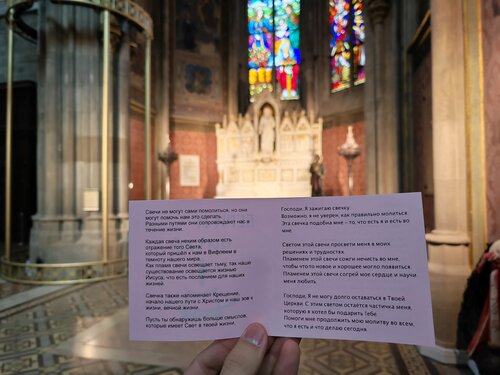 Свечи не могут сами помолиться, но они
могут помочь нам это сделать.
Разными путями они сопровождают нас в
течение жизни.
Каждая свеча неким образом есть
отражение того Света,
который пришёл к нам в Вифлеем в
темноту нашего мира.
Как пламя свечи освещает тьму, так наше
существование освещается жизнью
Иисуса, что есть посланием для наших
жизней.
Свечка также напоминает Крещение,
начало нашего пути с Христом и наш зов к
жизни, вечной жизни.
Пусть ты обнаружишь больше смыслов,
которые имеет Свет в твоей жизни.
Господи, Я зажигаю свечку.
Возможно, я не уверен, как правильно молиться.
Эта свечка подобна мне – то, что есть я и есть во
мне.
Светом этой свечи просвети меня в моих
решениях и трудностях.
Пламенем этой свечи сожги нечисть во мне,
чтобы что-то новое и хорошее могло появиться.
Пламенем этой свечи согрей мое сердце и научи
меня любить.
Господи, Я не могу долго оставаться в Твоей
Церкви. С этим светом остаётся частичка меня,
которую я хотел бы подарить Тебе.
Помоги мне продолжить мою молитву во всем,
что я есть и что делаю сегодня.